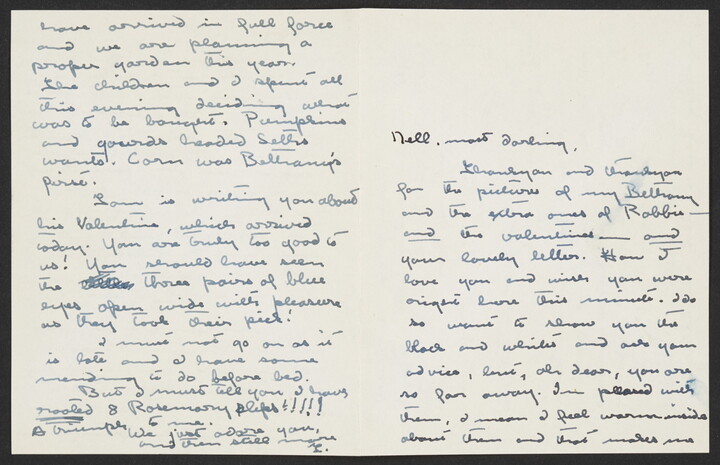 have arrived in full force
and we are planning a
proper garden this year.
The children and I spent all
this evening deciding what
was to be bought. Pumpkins
and gourds headed Seths
wants. Corn was Bethany's
first.
Tom is writing you about
his Valentine, which arrived
today. You are truly too good to
us! You should have seen
the three pairs of blue
eyes open wide with pleasure
as they took their pick!
I must not go on as it
is late and I have some
mending to do before bed.
But I must tell you, I have
rooted 8 Rosemary slips!!!!!
A triumph to me.
We just adore you,
and then still more
T.
Nell, most darling,
Thankyou and thankyou
for the pictures of my Bethany
and the extra ones of Robbie—
and the valentines — and
your lovely letter. How I
love you and wish you were
right here this minute. I do
so want to show you the
black and whites and ask your
advice, but, oh dear, you are
so far away. I'm pleased with
them, I mean I feel warm inside
about them and that makes me